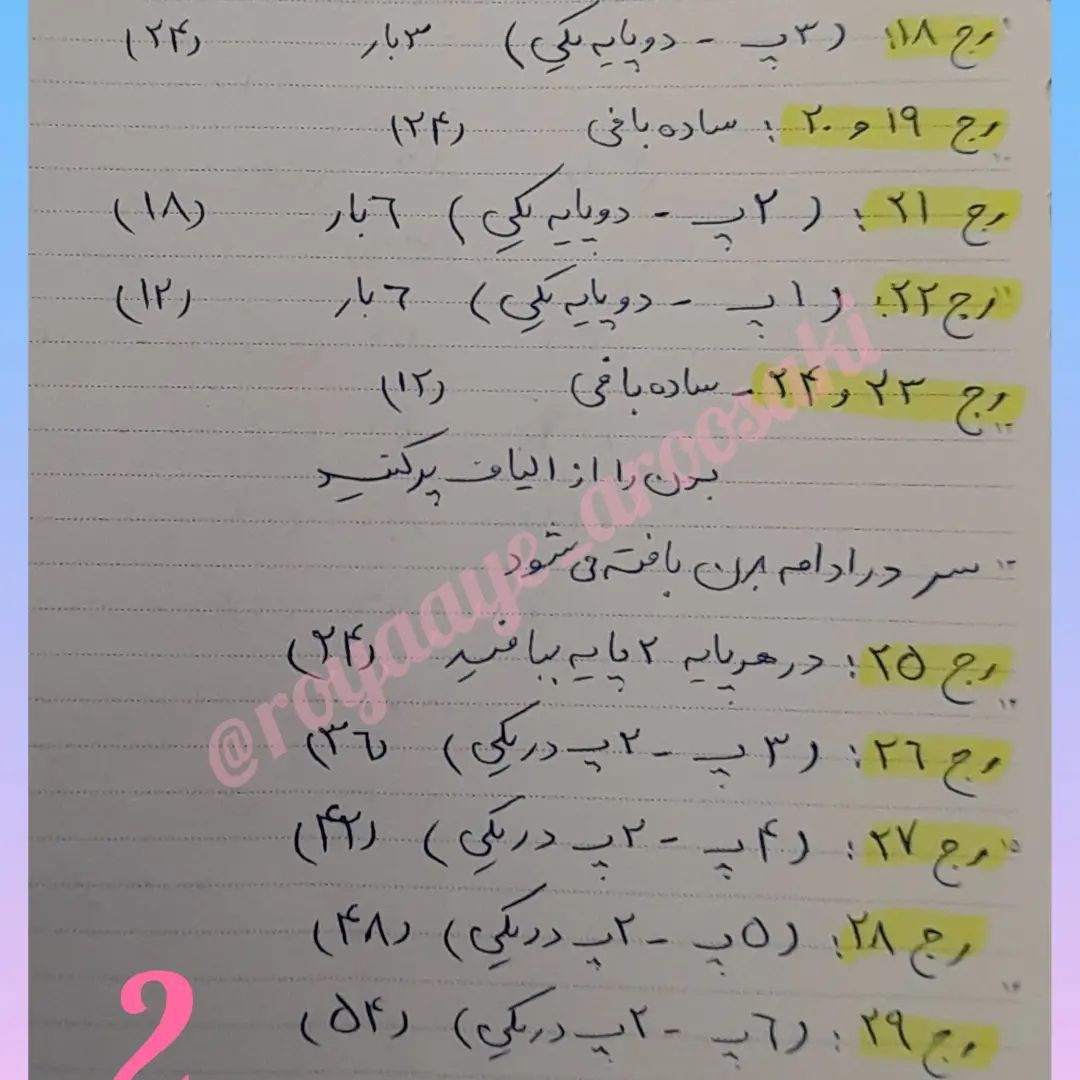 رج ۱۸: (۳پ - دوپایه یکی) ۳بار (۲۴)
رج ۱۹ و ۲۰: ساده بافی (۲۴)
رج ۲۱: (۲پ - دوپایه یکی) ۶بار (۱۸)
رج ۲۲: (۱پ - دوپایه یکی) ۶بار (۱۲)
رج ۲۳ و ۲۴ - ساده بافی (۱۲)
بدن را از الیاف پر کنید
سر در ادامه بدن بافته می شود
رج ۲۵: در هر پایه ۲ پایه ببافید (۲۴)
رج ۲۶: (۳پ - ۲پ در یکی) (۳۶)
رج ۲۷: (۴پ - ۲پ در یکی) (۴۲)
رج ۲۸: (۵پ - ۲پ در یکی) (۴۸)
رج ۲۹: (۶پ - ۲پ در یکی) (۵۴)
@royaaye_aroosaki
2